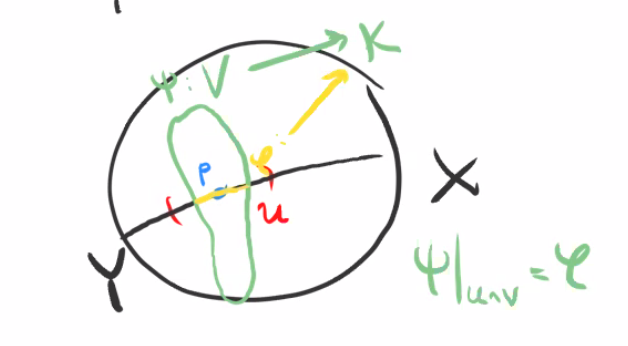 ψ : V → K
φ :
P
X
U
Y
ψ|U∩V = φ